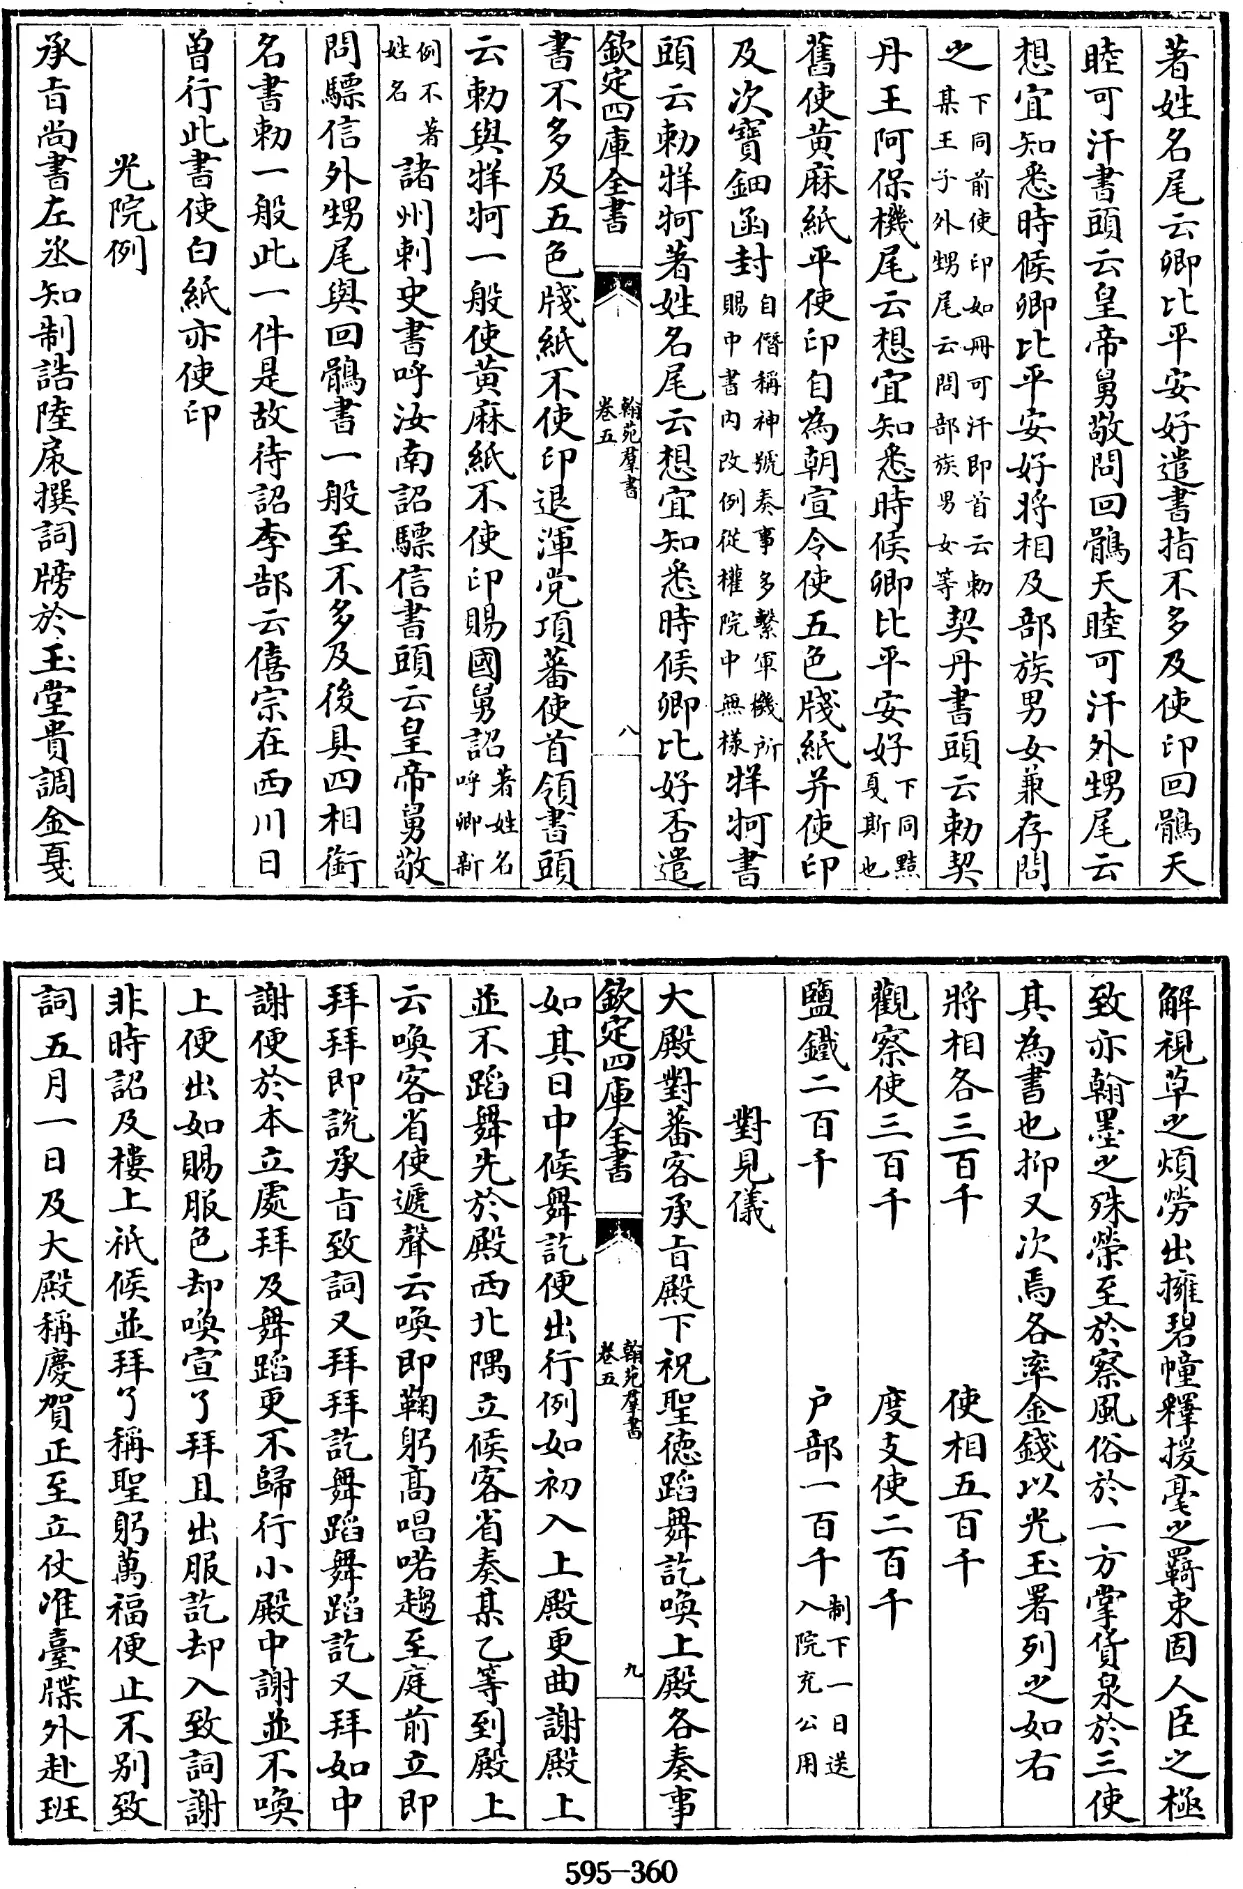 著姓名尾云卿比平安好遣書指不多及使印回鶻天
睦可汗書頭云皇帝舅敬問回鶻天睦可汗外甥尾云
想宜知悉時候卿比平安好將相及部族男女兼存問
之下同前使印如冊可汗即首云勅某王子外甥尾云問部族男女等契丹書頭云勅契
丹王阿保機尾云想宜知悉時候卿比平安好下同黠戛斯也
舊使黄麻紙平使印自為朝宣令使五色牋紙并使印
及次寶鈿函封自僭稱神號奏事多繫軍機所賜中書内改例從權院中無樣牂牁書
頭云勅牂牁著姓名尾云想宜知悉時候卿比好否遣
欽定四庫全書
翰苑羣書
卷五
八
書不多及五色牋紙不使印退渾党項蕃使首領書頭
云勅與牂牁一般使黄麻紙不使印賜國舅詔著姓名呼卿新
例不著姓名諸州刺史書呼汝南詔驃信書頭云皇帝舅敬
問驃信外甥尾與回鶻書一般至不多及後具四相銜
名書勅一般此一件是故待詔李郜云僖宗在西川日
曾行此書使白紙亦使印
光院例
承旨尚書左丞知制誥陸扆撰詞牓於玉堂貴調金戛
解視草之煩勞出擁碧幢釋援毫之羈束固人臣之極
致亦翰墨之殊榮至於察風俗於一方掌貨泉於三使
其為書也抑又次焉各率金錢以光玉署列之如右
將相各三百千　使相五百千
觀察使三百千　度支使二百千
鹽鐵二百千　户部一百千制下一日送入院充公用
對見儀
大殿對蕃客承旨殿下祝聖徳蹈舞訖喚上殿各奏事
欽定四庫全書
翰苑羣書
卷五
九
如其日中候舞訖便出行例如初入上殿更曲謝殿上
並不蹈舞先於殿西北隅立候客省奏某乙等到殿上
云喚客省使遞聲云喚即鞠躬高唱喏趨至庭前立即
拜拜即説承旨致詞又拜拜訖舞蹈舞蹈訖又拜如中
謝便於本立處拜及舞蹈更不歸行小殿中謝並不喚
上便出如賜服色却喚宣了拜且出服訖却入致詞謝
非時詔及樓上祇候並拜了稱聖躬萬福便止不别致
詞五月一日及大殿稱慶賀正至立仗准臺牒外赴班
595-360